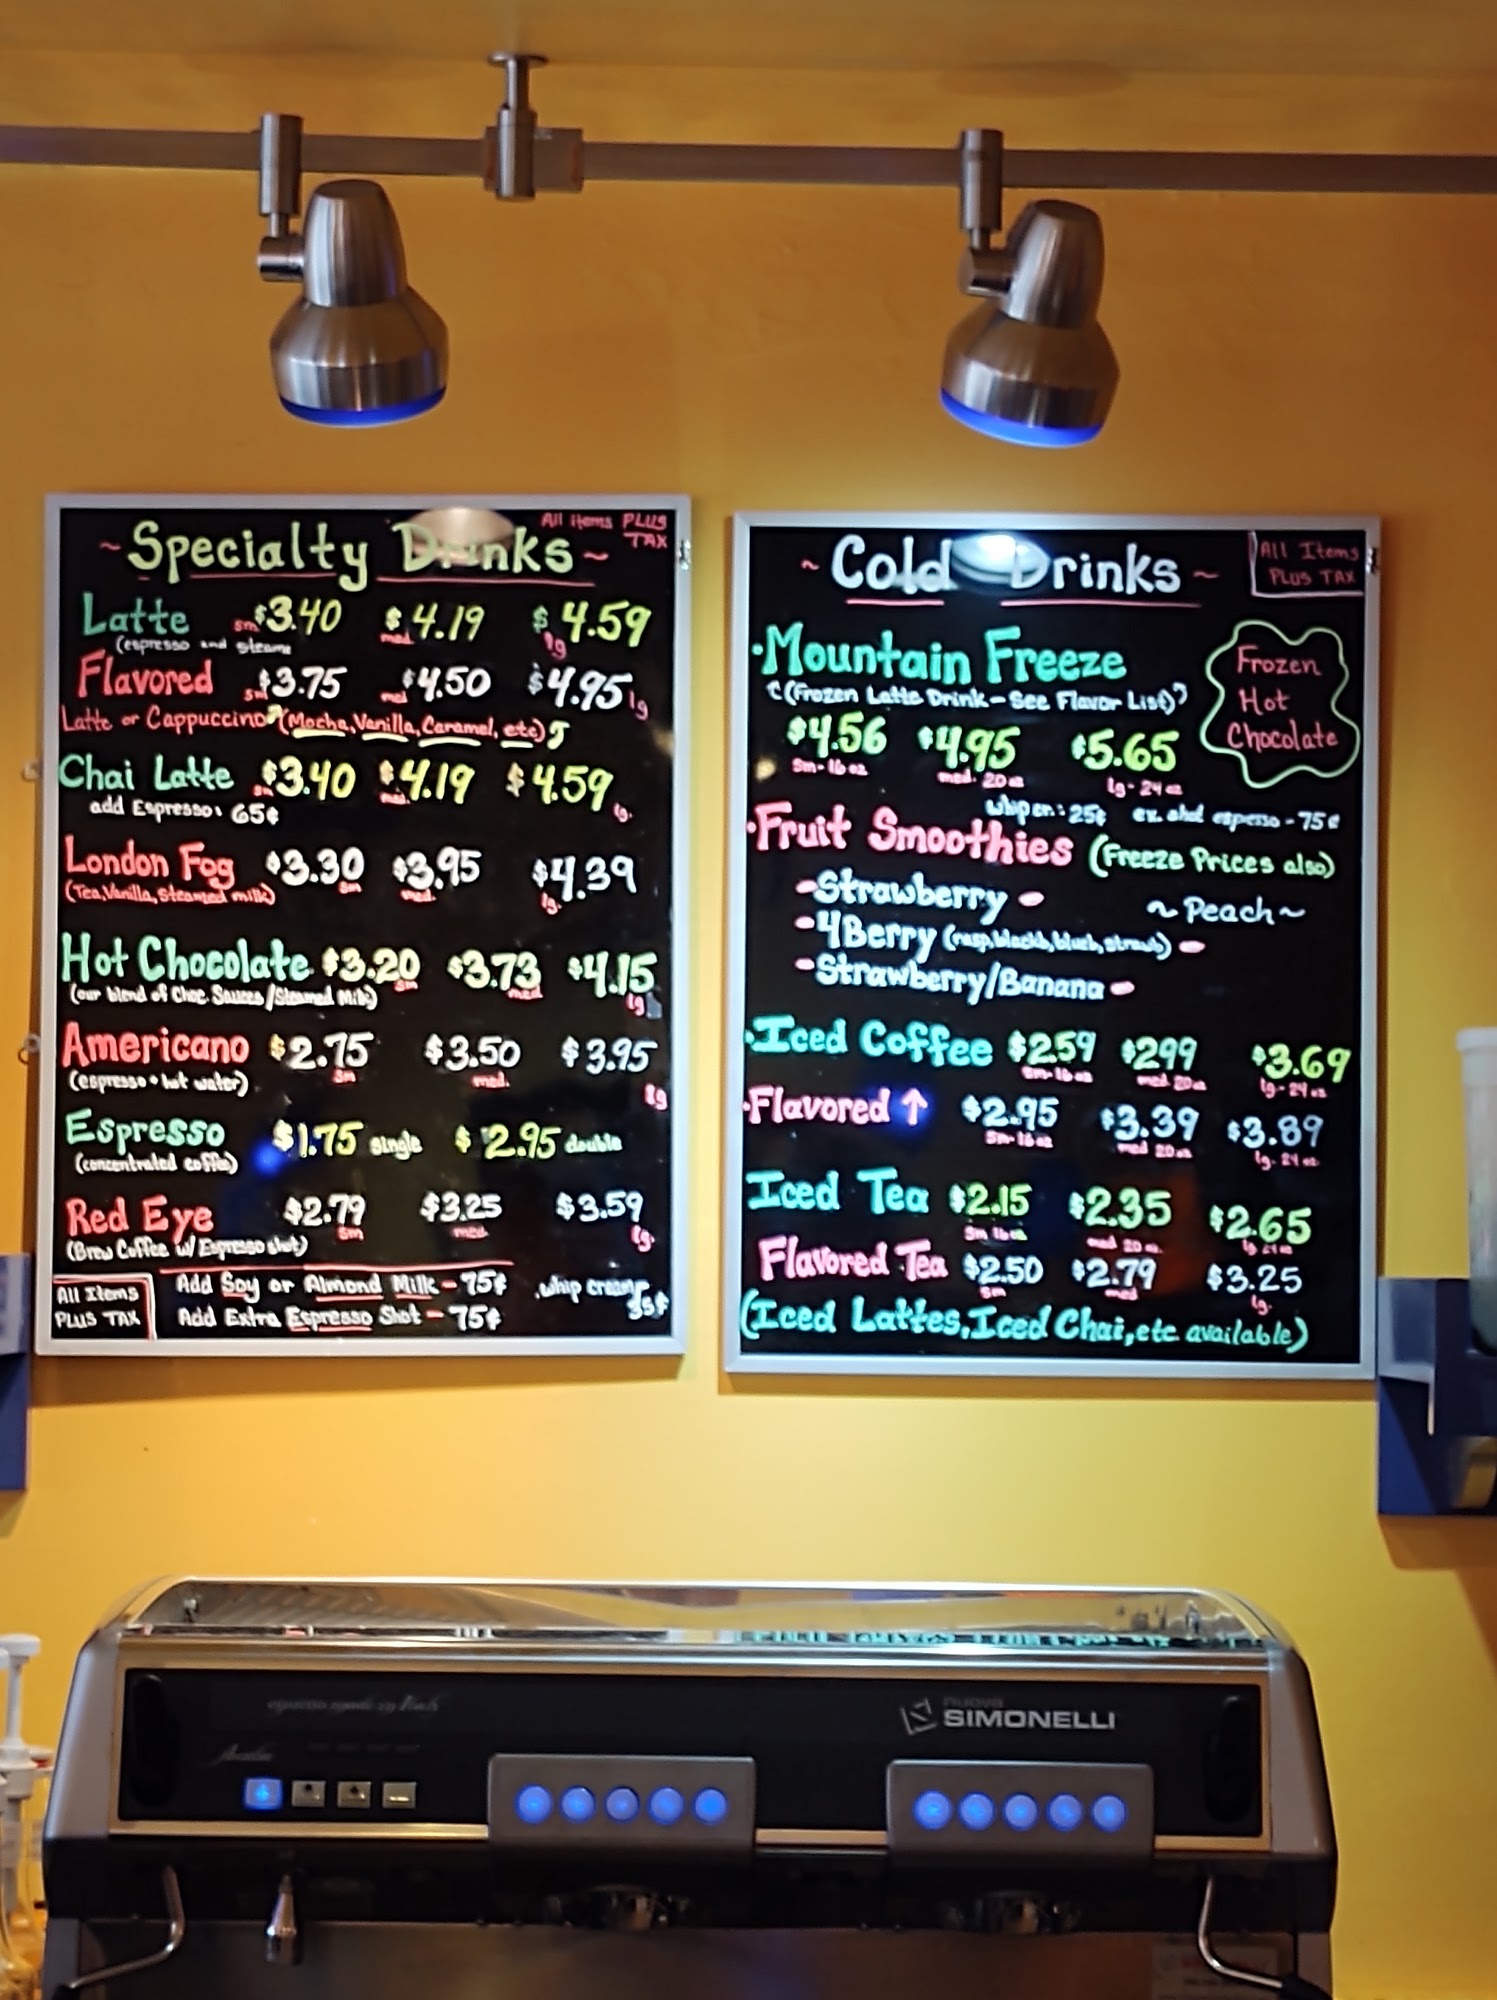 ~Specialty Drinks~
All items PLUS
TAX
Latte sm $3.40 med. $4.19 $4.59 lg
(espresso and steam
Flavored sm $3.75 med $4.50 $4.95 lg
Latte or Cappuccino (Mocha, Vanilla, Caramel, etc)
Chai Latte sm $3.40 med. $4.19 $4.59 lg.
add Espresso: 65¢
London Fog $3.30 sm $3.95 med. $4.39 lg.
(Tea, Vanilla, Steamed milk)
Hot Chocolate $3.20 sm $3.73 med $4.15 lg
(our blend of Choc. Sauces/Steamed Milk)
Americano $2.75 sm $3.50 med. $3.95 lg
(espresso + hot water)
Espresso $1.75 single $2.95 double
(concentrated coffee)
Red Eye $2.79 sm $3.25 med. $3.59 lg.
(Brew Coffee w/ Espresso shot)
All Items
PLUS TAX
Add Soy or Almond Milk - 75¢
Add Extra Espresso Shot - 75¢
whip cream 35¢
~Cold Drinks~
All Items
PLUS TAX
·Mountain Freeze
(Frozen Latte Drink - See Flavor List)
$4.56 $4.95 $5.65
sm-16 oz med. 20 oz lg-24 oz
Frozen
Hot
Chocolate
whip cr.: 25¢ ex. shot espresso - 75¢
·Fruit Smoothies (Freeze Prices also)
-Strawberry-
~Peach~
-4Berry (rasp, blackb, blueb, strawb)-
-Strawberry/Banana-
·Iced Coffee $2.59 $2.99 $3.69
sm-16 oz med 20 oz lg-24 oz
·Flavored ↑ $2.95 $3.39 $3.89
sm-16 oz med 20 oz lg-24 oz
Iced Tea $2.15 $2.35 $2.65
sm 16 oz med 20 oz. lg 24 oz
Flavored Tea $2.50 $2.79 $3.25
sm med lg.
(Iced Lattes, Iced Chai, etc available)
nuova
SIMONELLI